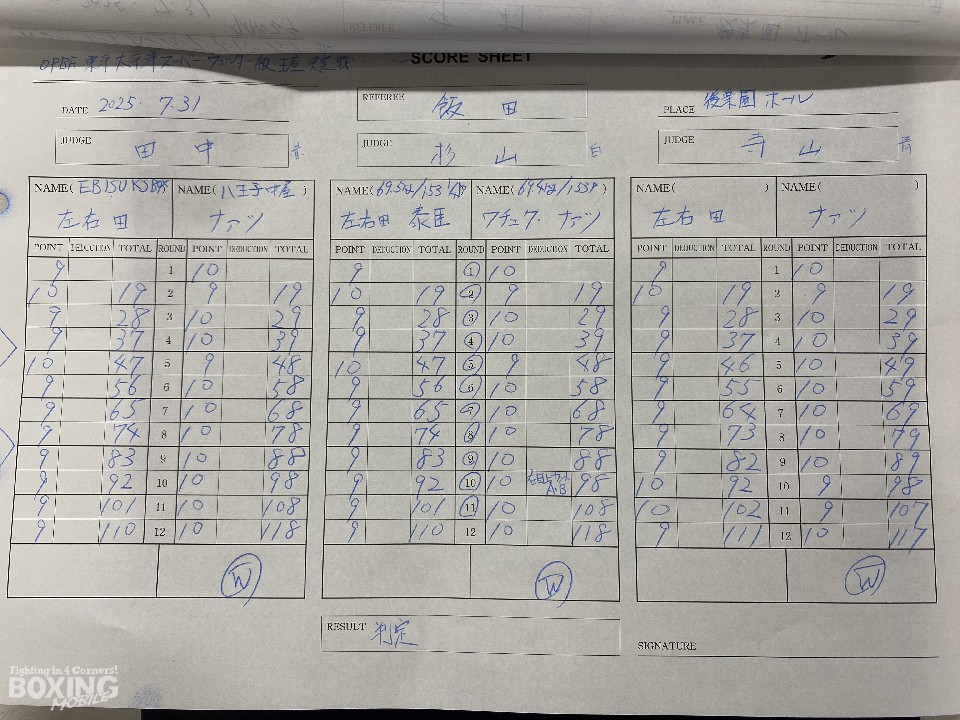 SCORE SHEET
OPBF 東洋太平洋スーパーウェルター級王座決定戦
DATE 2025. 7.31
REFEREE 飯田
PLACE 後楽園ホール
JUDGE 田中 赤
JUDGE 杉山 白
JUDGE 寺山 青
NAME( EBISU K'S BOX ) NAME( 八王子中屋 )
左右田 ナァツ
POINT DEDUCTION TOTAL ROUND POINT DEDUCTION TOTAL
9 1 10
10 19 2 9 19
9 28 3 10 29
9 37 4 10 39
10 47 5 9 48
9 56 6 10 58
9 65 7 10 68
9 74 8 10 78
9 83 9 10 88
9 92 10 10 98
9 101 11 10 108
9 110 12 10 118
W
NAME( ) NAME( )
左右田 泰臣 ワチュク ナァツ
POINT DEDUCTION TOTAL ROUND POINT DEDUCTION TOTAL
9 1 10
10 19 2 9 19
9 28 3 10 29
9 37 4 10 39
10 47 5 9 48
9 56 6 10 58
9 65 7 10 68
9 74 8 10 78
9 83 9 10 88
9 92 10 10 98
9 101 11 10 108
9 110 12 10 118
W
NAME( ) NAME( )
左右田 ナァツ
POINT DEDUCTION TOTAL ROUND POINT DEDUCTION TOTAL
9 1 10
10 19 2 9 19
9 28 3 10 29
9 37 4 10 39
9 46 5 10 49
9 55 6 10 59
9 64 7 10 69
9 73 8 10 79
9 82 9 10 89
10 92 10 9 98
10 102 11 9 107
9 111 12 10 117
W
RESULT 判定
SIGNATURE
Fighting in 4 Corners!
BOXING
MOBILE